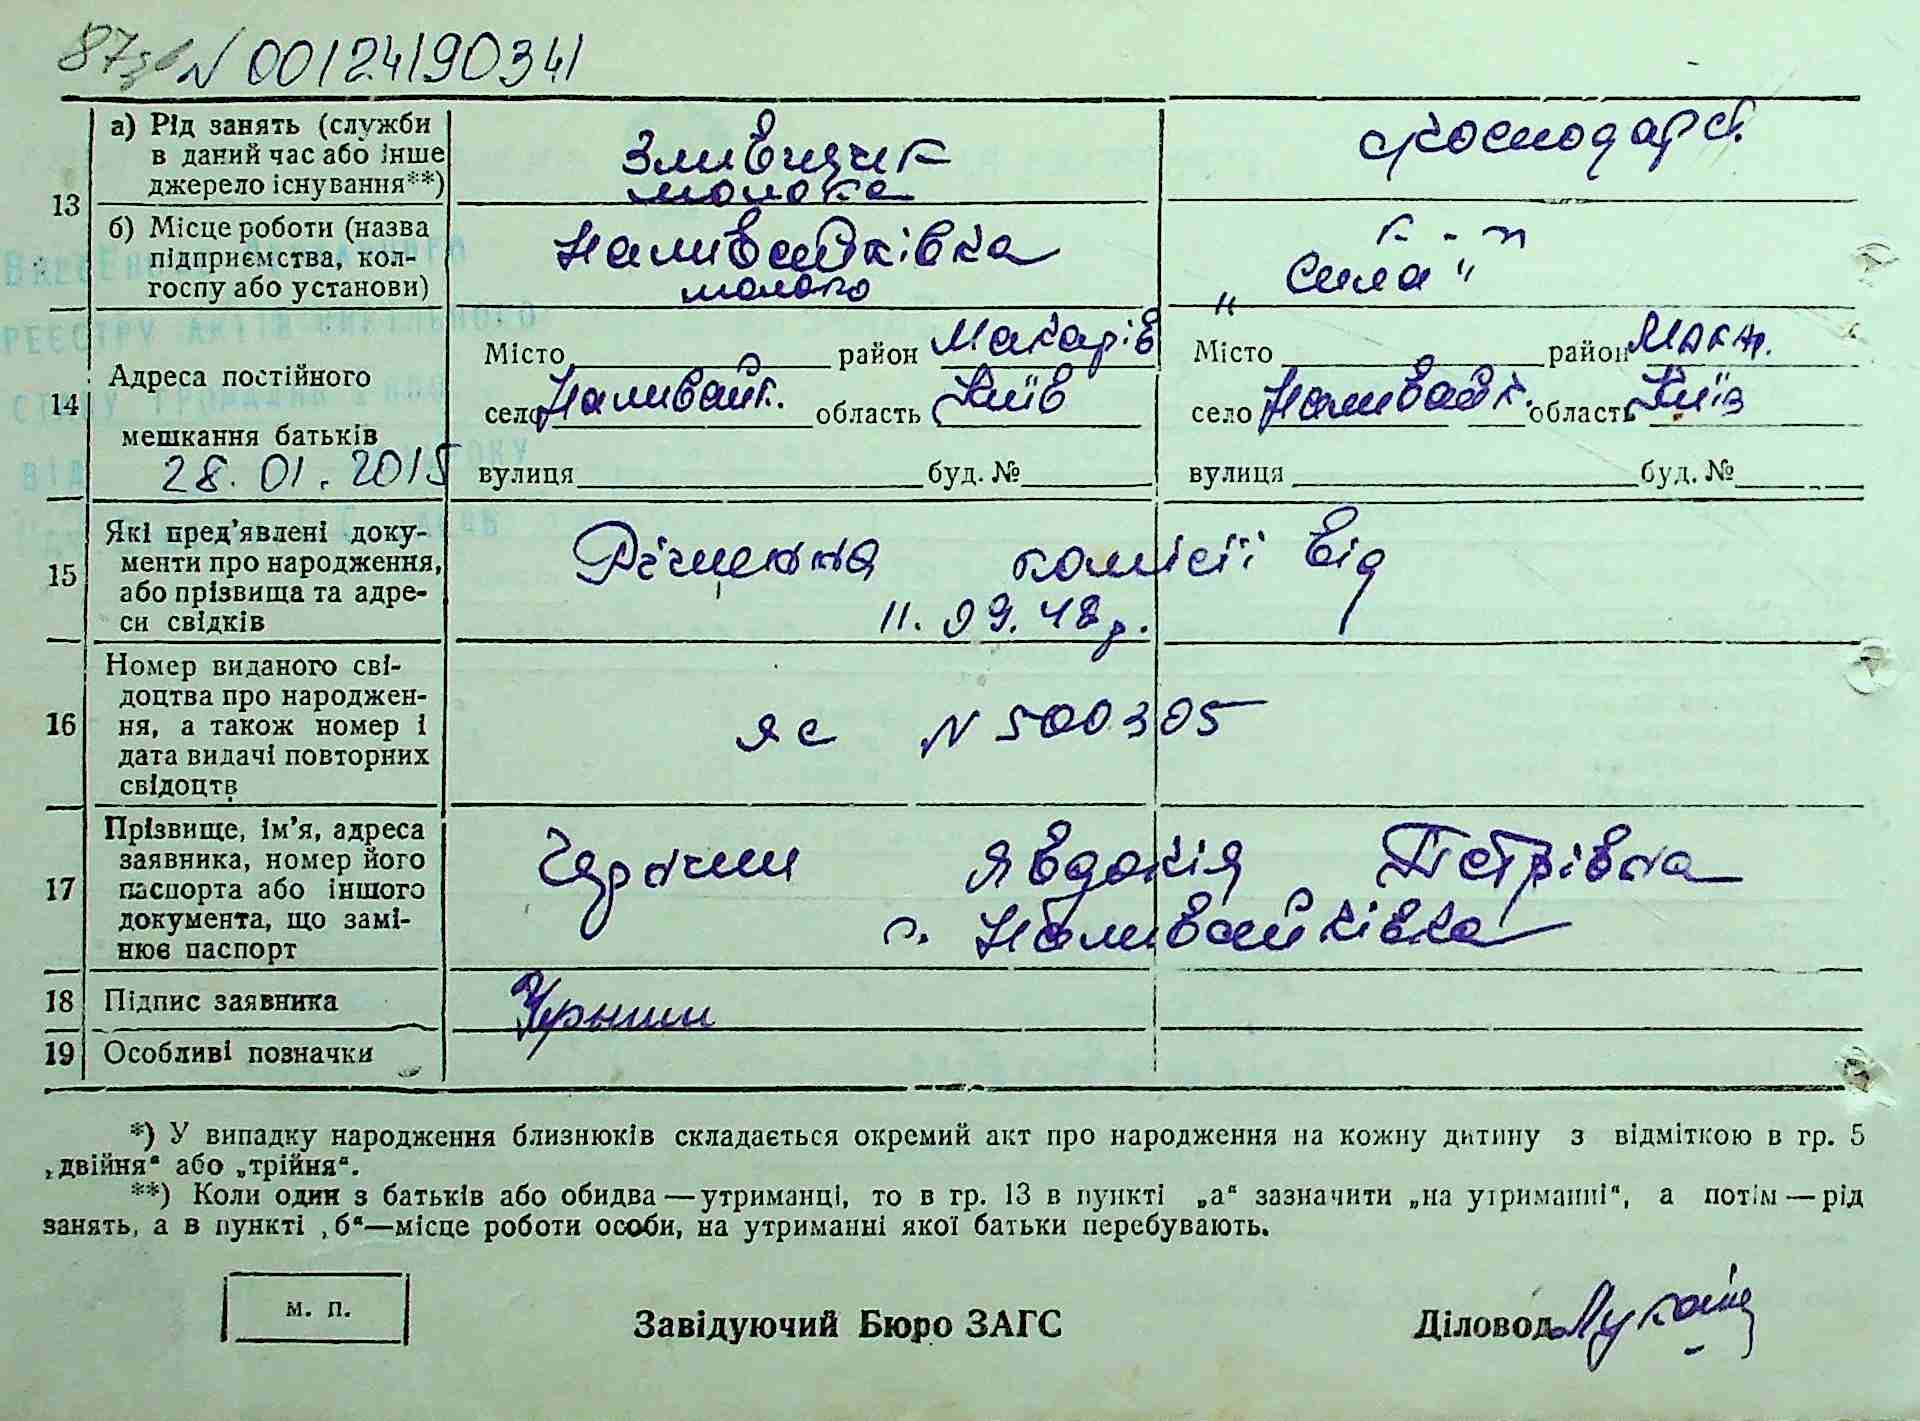 87зв N 00124190341
13
а) Рід занять (служби в даний час або інше джерело існування**)
Зливщик молока
господарст.
б) Місце роботи (назва підприємства, колгоспу або установи)
Наливайківка молоко
к-п „Сила"
14
Адреса постійного мешкання батьків
Місто район Макарів
село Наливайк. область Київ
вулиця буд. №
Місто район Макар.
село Наливайк. область Київ
вулиця буд. №
ВНЕСЕНО ДО ДЕРЖАВНОГО
РЕЄСТРУ АКТІВ ЦИВІЛЬНОГО
СТАНУ ГРОМАДЯН
ВІД 28.01.2015 РОКУ
15
Які пред'явлені документи про народження, або прізвища та адреси свідків
Рішення комісії від
11.09.48 р.
16
Номер виданого свідоцтва про народження, а також номер і дата видачі повторних свідоцтв
ЯС N 500305
17
Прізвище, ім'я, адреса заявника, номер його паспорта або іншого документа, що замінює паспорт
Явдокія Петрівна
с. Наливайківка
18
Підпис заявника
19
Особливі позначки
*) У випадку народження близнюків складається окремий акт про народження на кожну дитину з відміткою в гр. 5
„двійня" або „трійня".
**) Коли один з батьків або обидва — утриманці, то в гр. 13 в пункті „а" зазначити „на утриманні", а потім — рід
занять, а в пункті „б"—місце роботи особи, на утриманні якої батьки перебувають.
м. п.
Завідуючий Бюро ЗАГС
Діловод